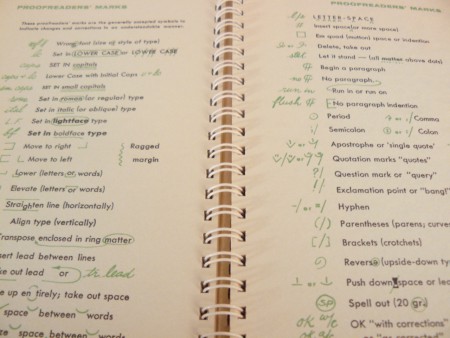 PROOFREADERS' MARKS
These proofreaders' marks are the generally accepted symbols to
indicate changes and corrections in an understandable manner.
wf Wrong font (size or style of type)
lc Set in LOWER CASE or LOWER CASE
caps SET IN capitals
Lower Case with Initial Caps
SET IN small capitals
Set in roman (or regular) type
ital Set in italic (or oblique) type
Set in lightface type
bf Set in boldface type
Move to right Ragged
Move to left margin
Lower (letters or words)
Elevate (letters or words)
Straighten line (horizontally)
Align type (vertically)
Transpose enclosed in ring matter
ert lead between lines
ke out lead or tr lead
e up entirely; take out space
space between words
space between words
PROOFREADERS' MARKS
LETTER-SPACE
# Insert space (or more space)
Em quad (mutton) space or indention
Delete, take out
stet Let it stand — (all matter above dots)
Begin a paragraph
no ¶ No paragraph.
run in Run in or run on
flush ¶ No paragraph indention
Period or Comma
; Semicolon or Colon
Apostrophe or 'single quote'
Quotation marks "quotes"
?/ Question mark or "query"
!/ Exclamation point or "bang!"
-/ or Hyphen
(/) Parentheses (parens; curves)
[/] Brackets (crotchets)
Reverse (upside-down type)
⊥ or Push down space or lead
SP Spell out (20 gr.)
OK w/c OK "with corrections"
or "as corrected"